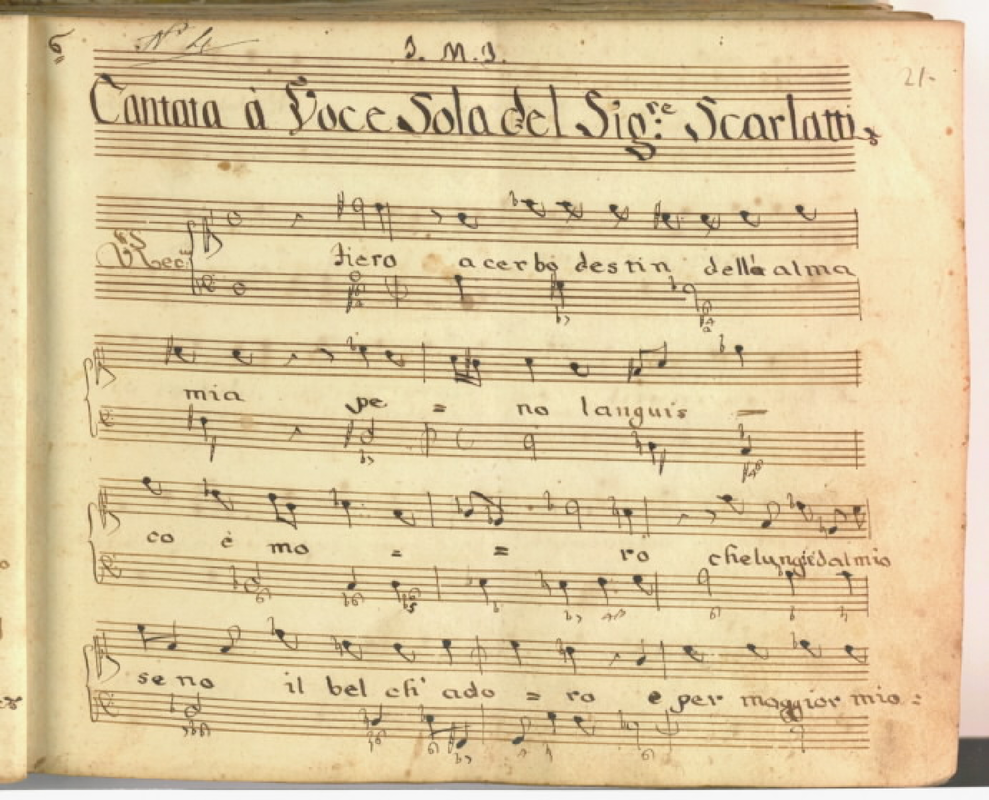 6 Nº 4 J. M. J. 21
Cantata à Voce Sola del Sig.re Scarlatti
Rec. fiero acerbo destin dell'alma
mia pe = no languis
co è mo = = ro che lungi dal mio
seno il bel ch' ado = ro e per maggior mio :